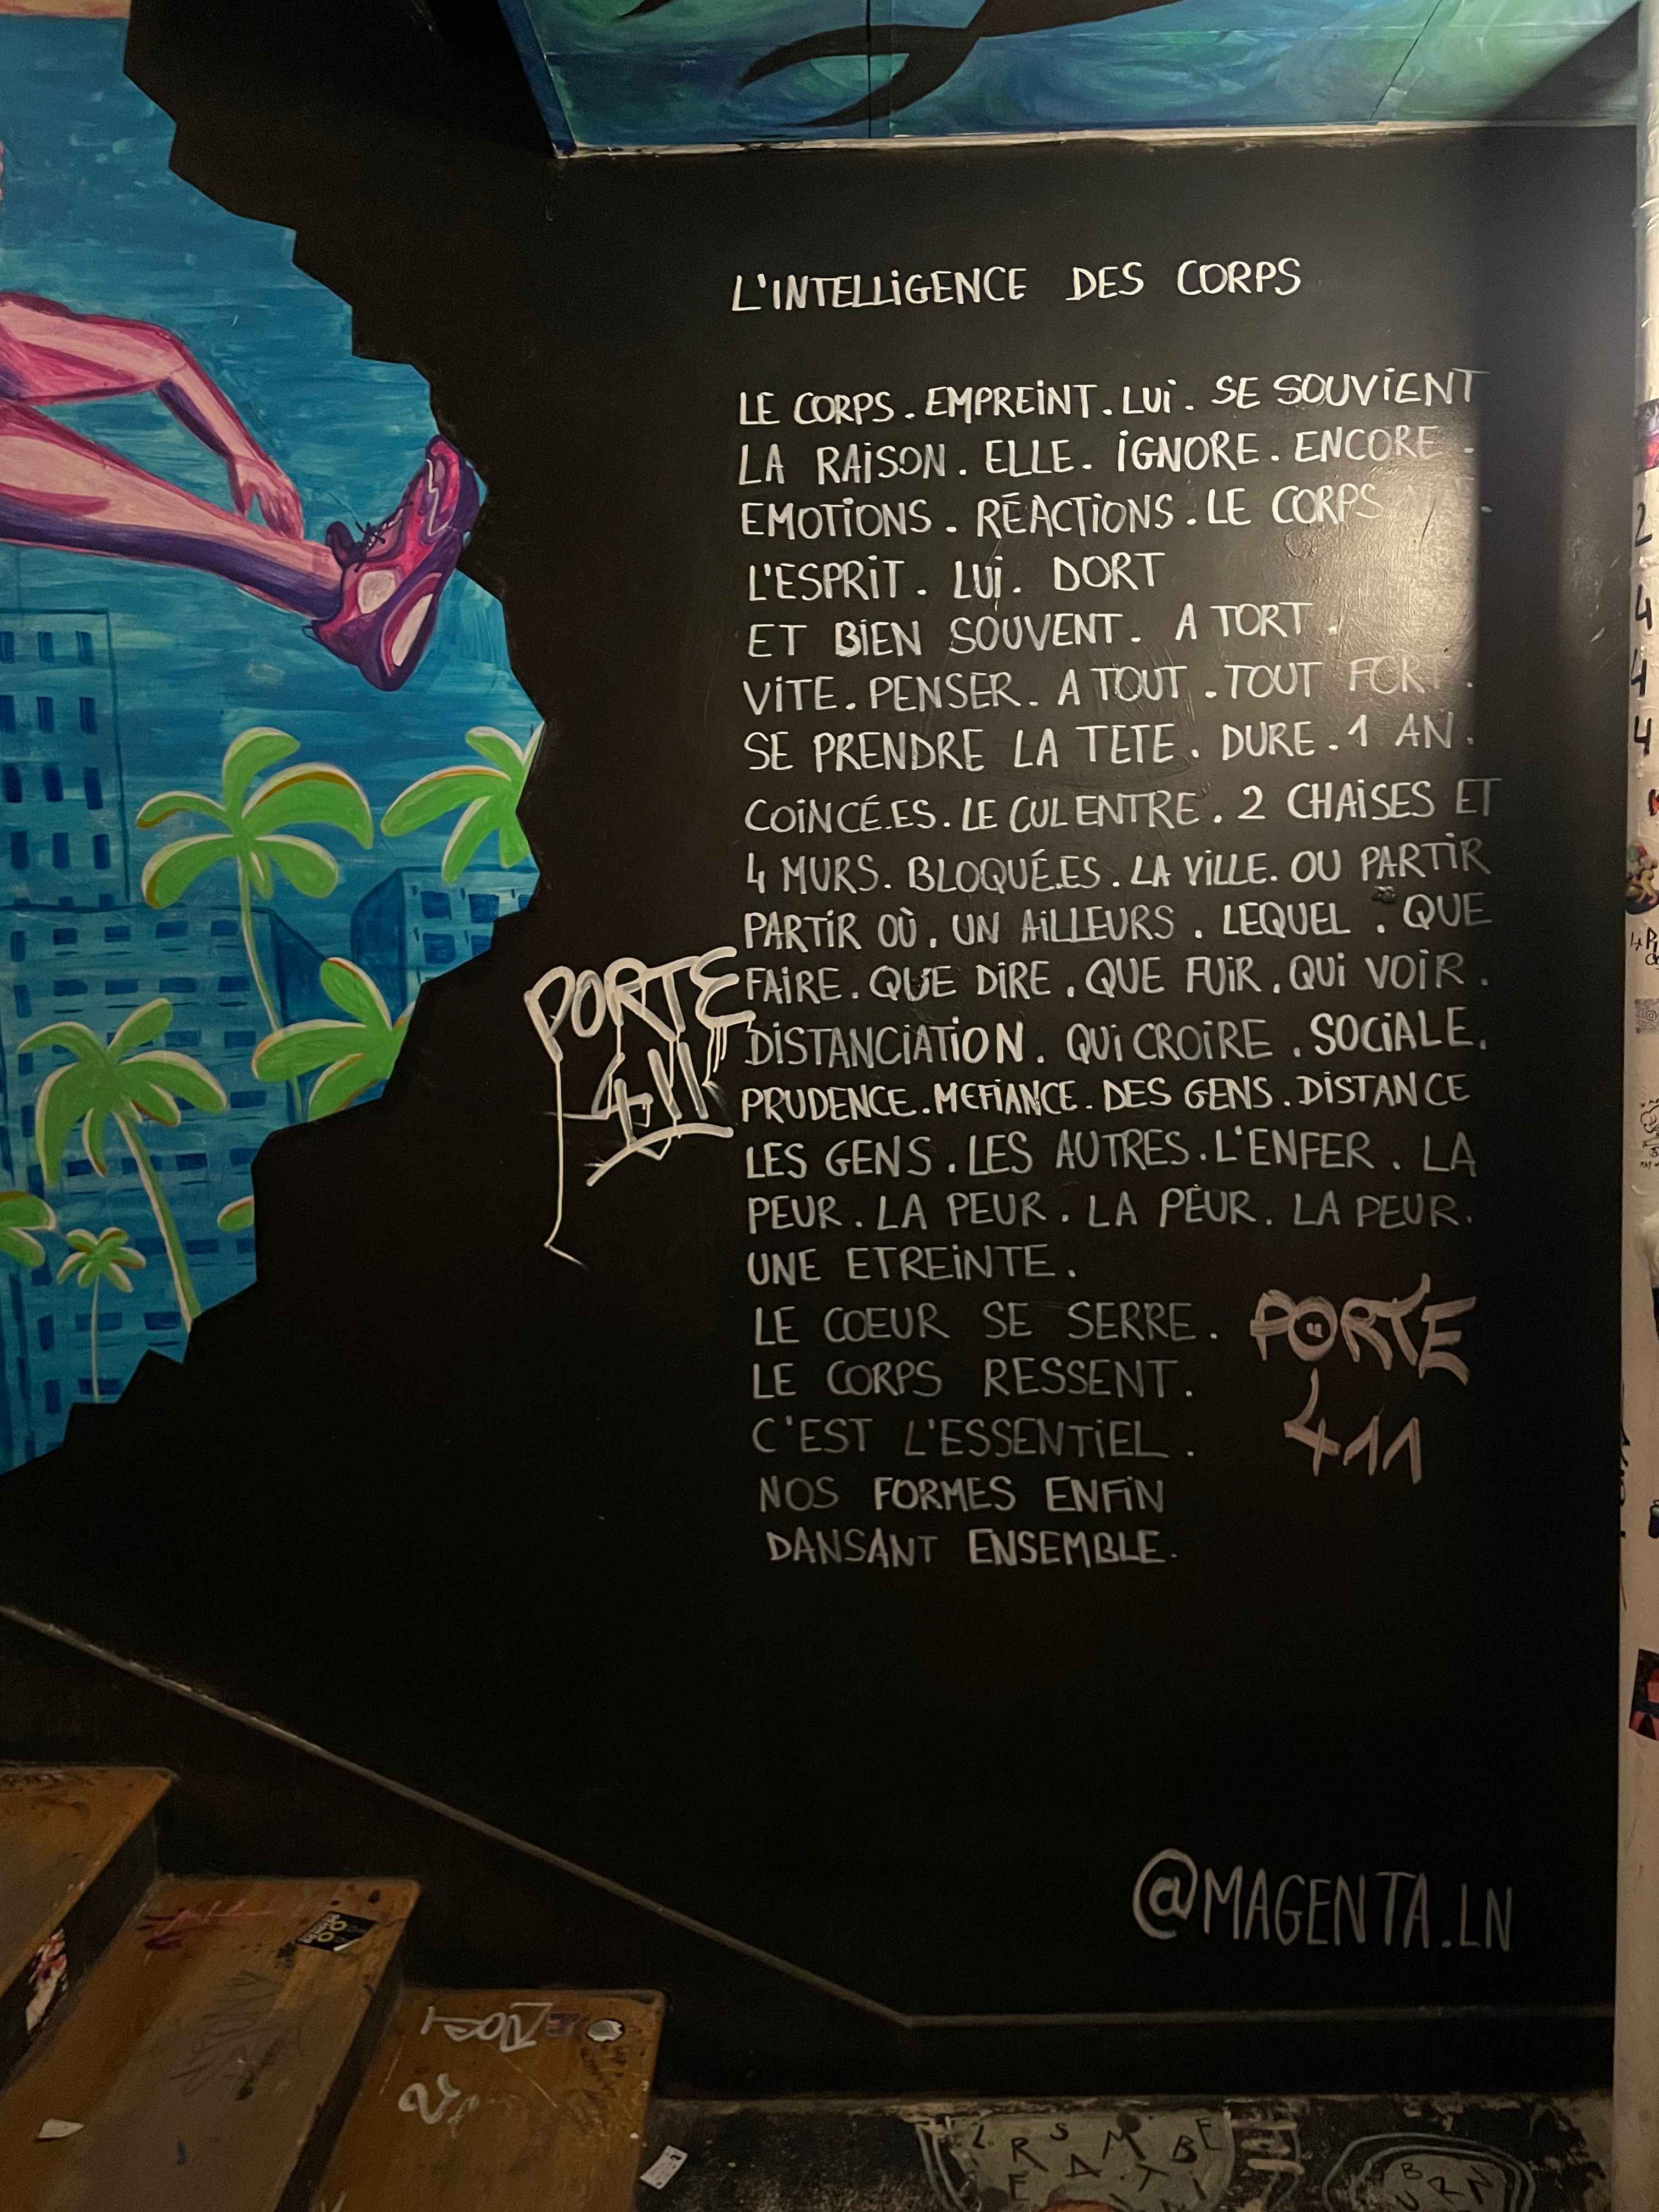 L'INTELLIGENCE DES CORPS
LE CORPS. EMPREINT. LUI. SE SOUVIENT
LA RAISON. ELLE. IGNORE. ENCORE.
EMOTIONS. RÉACTIONS. LE CORPS
L'ESPRIT. LUI. DORT
ET BIEN SOUVENT. A TORT.
VITE. PENSER. A TOUT. TOUT FORT.
SE PRENDRE LA TETE. DURE. 1 AN.
COINCÉ.ES. LE CUL ENTRE. 2 CHAISES ET
4 MURS. BLOQUÉ.ES. LA VILLE. OU PARTIR
PARTIR OÙ. UN AILLEURS. LEQUEL. QUE
FAIRE. QUE DIRE. QUE FUIR. QUI VOIR.
DISTANCIATION. QUI CROIRE. SOCIALE.
PRUDENCE. MEFIANCE. DES GENS. DISTANCE
LES GENS. LES AUTRES. L'ENFER. LA
PEUR. LA PEUR. LA PEUR. LA PEUR.
UNE ETREINTE.
LE COEUR SE SERRE.
LE CORPS RESSENT.
C'EST L'ESSENTIEL.
NOS FORMES ENFIN
DANSANT ENSEMBLE.
PORTE
411
PORTE
411
@MAGENTA.LN